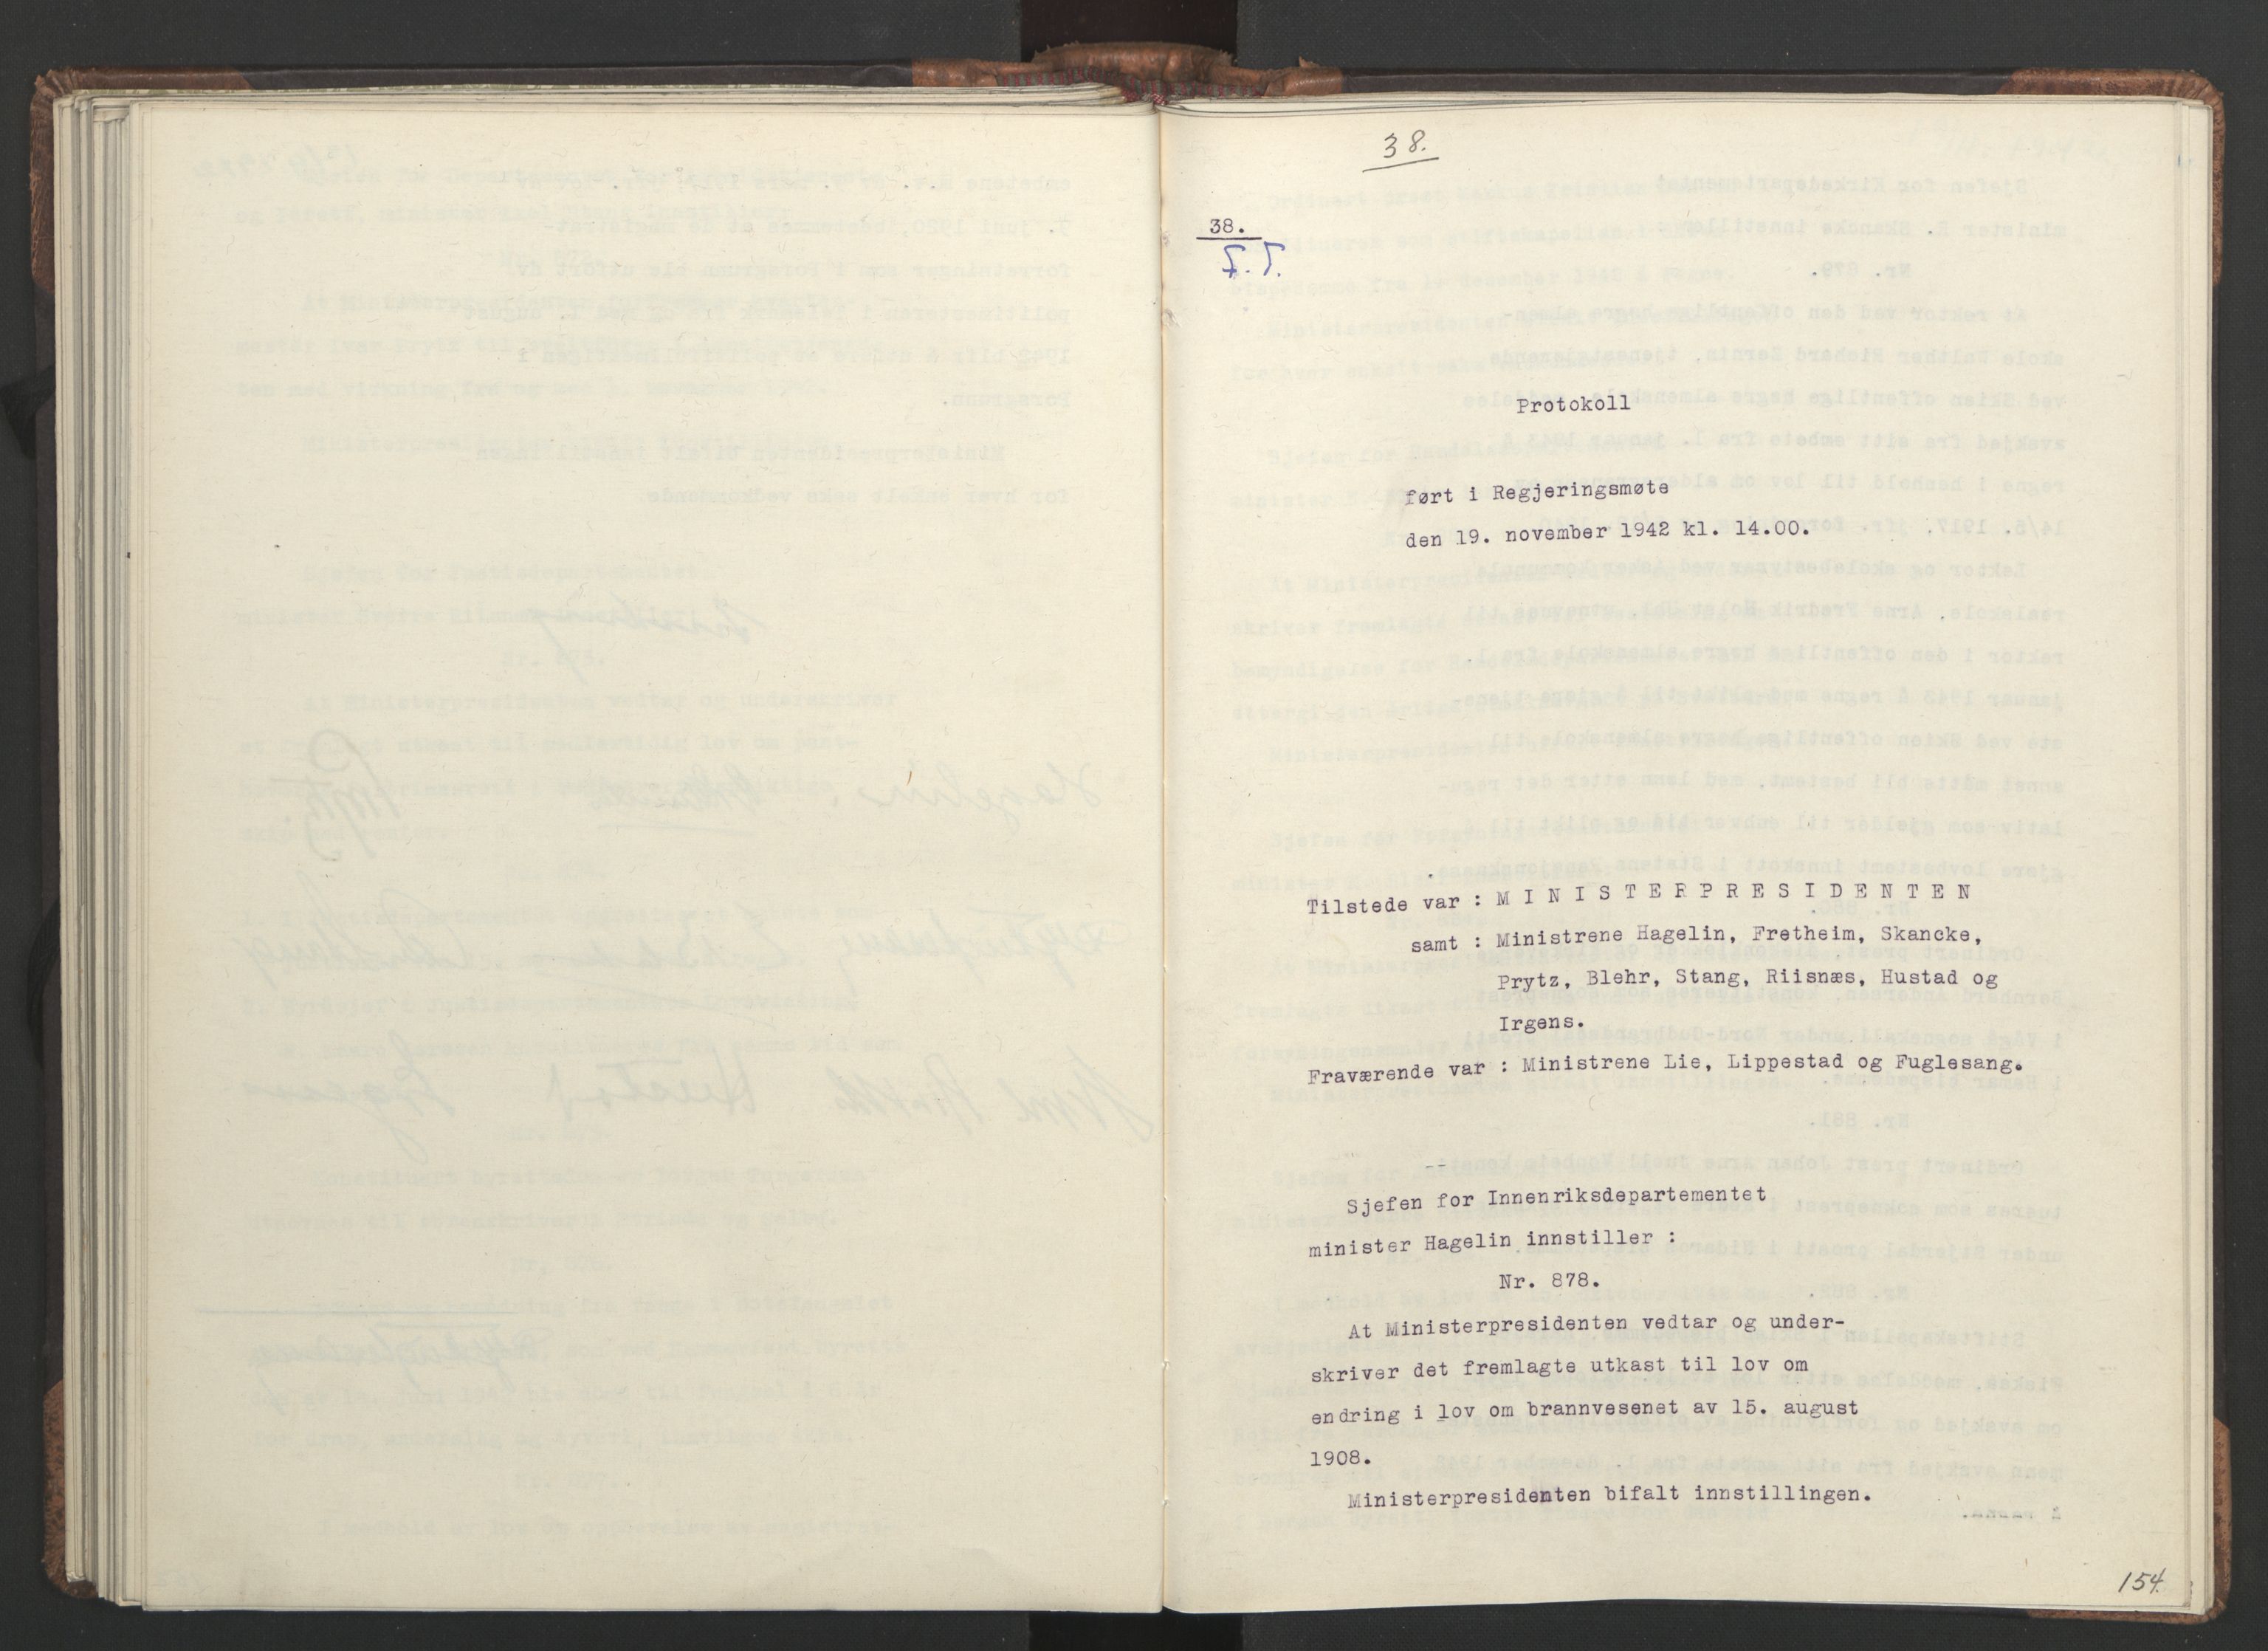 38.
38.
Protokoll
ført i Regjeringsmøte
den 19. november 1942 kl. 14.00.
Tilstede var : M I N I S T E R P R E S I D E N T E N
samt : Ministrene Hagelin, Fretheim, Skancke,
Prytz, Blehr, Stang, Riisnæs, Hustad og
Irgens.
Fraværende var : Ministrene Lie, Lippestad og Fuglesang.
--
Sjefen for Innenriksdepartementet
minister Hagelin innstiller :
Nr. 878.
At Ministerpresidenten vedtar og under-
skriver det fremlagte utkast til lov om
endring i lov om brannvesenet av 15. august
1908.
Ministerpresidenten bifalt innstillingen.
154.